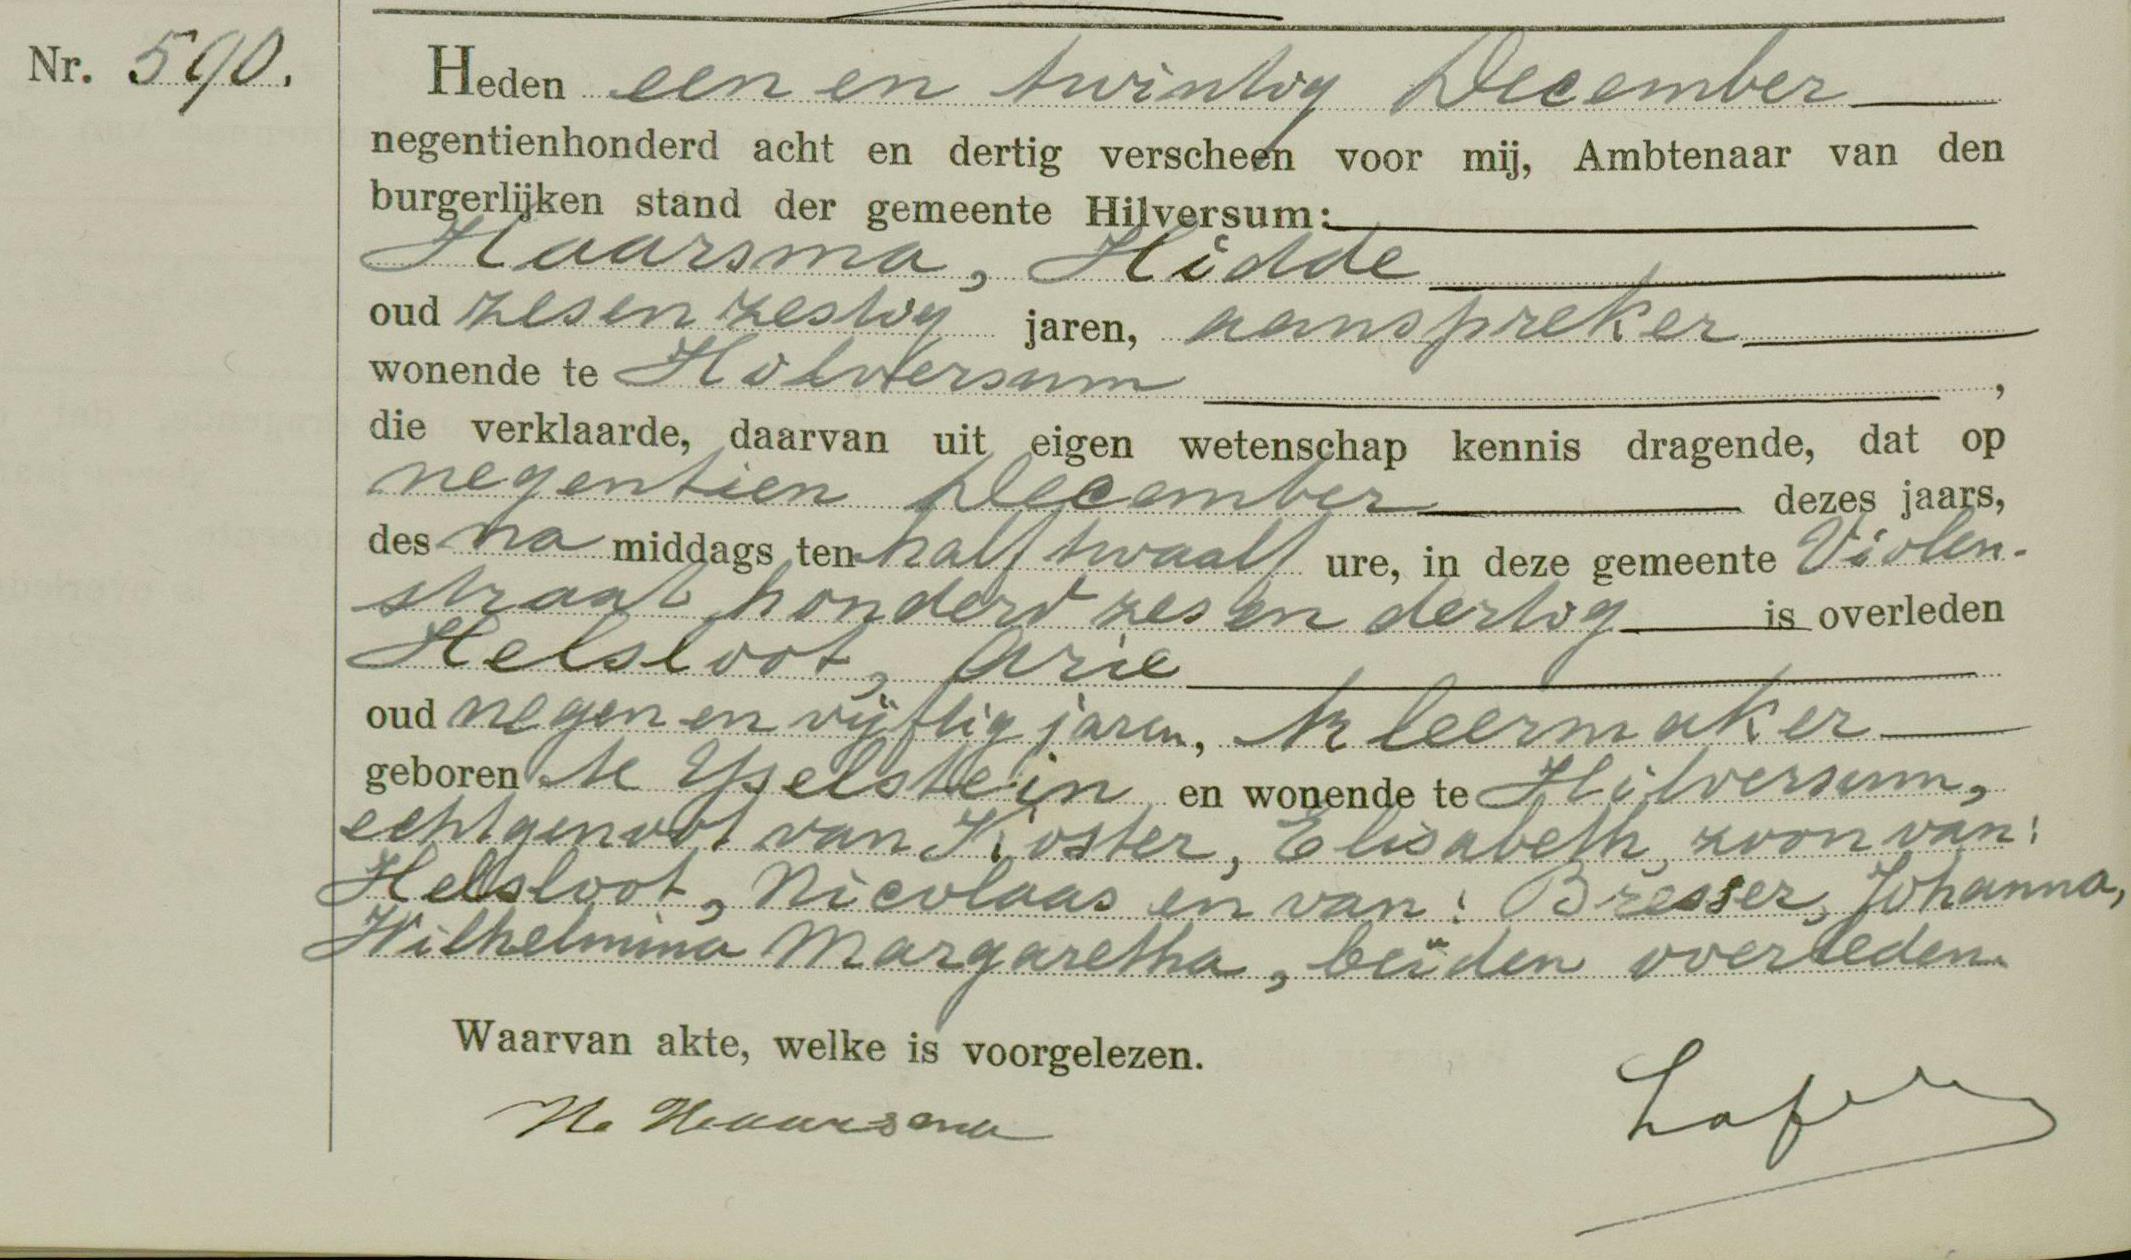 Nr. 590.
Heden een en twintig December
negentienhonderd acht en dertig verscheen voor mij, Ambtenaar van den
burgerlijken stand der gemeente Hilversum:
Haarsma, Hidde
oud zesenzestig jaren, aanspreker
wonende te Hilversum,
die verklaarde, daarvan uit eigen wetenschap kennis dragende, dat op
negentien December dezes jaars,
des na middags ten half twaalf ure, in deze gemeente Violen-
straat honderd zes en dertig is overleden
Helsloot, Arie
oud negen en vijftig jaren, kleermaker
geboren te Yselstein en wonende te Hilversum,
echtgenoot van Koster, Elisabeth, zoon van:
Helsloot, Nicolaas en van: Bresser, Johanna,
Wilhelmina Margaretha, beiden overleden.
Waarvan akte, welke is voorgelezen.
H. Haarsma